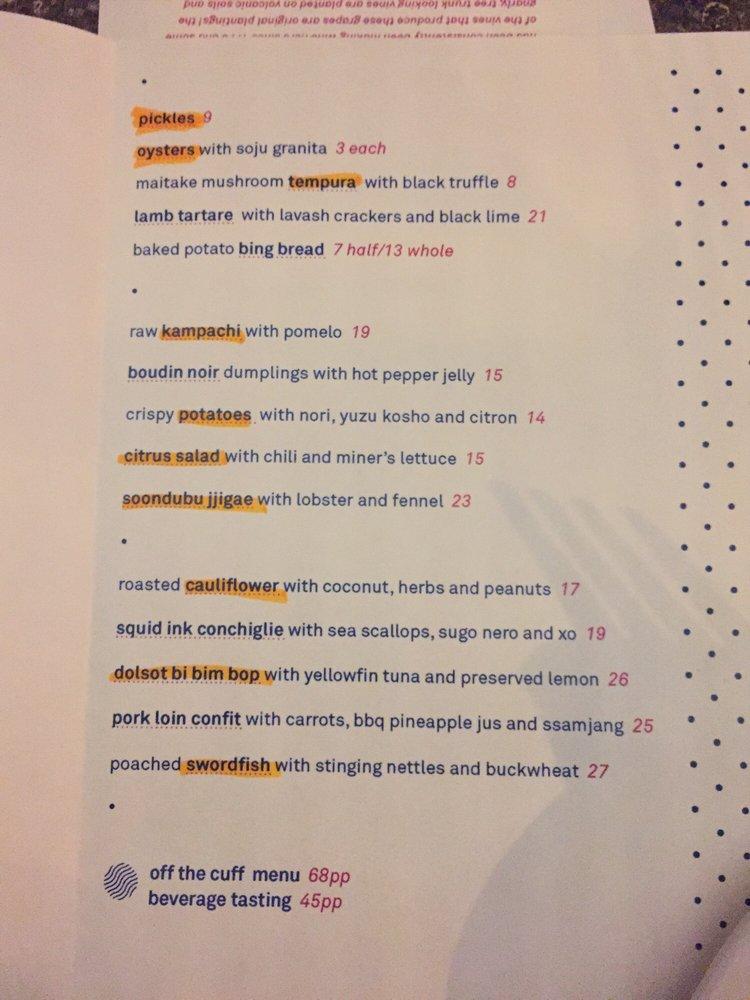 gnarly, tree trunk looking vines are planted on volcanic soils and
of the vines that produce these grapes are original plantings! the
pickles 9
oysters with soju granita 3 each
maitake mushroom tempura with black truffle 8
lamb tartare with lavash crackers and black lime 21
baked potato bing bread 7 half/13 whole
raw kampachi with pomelo 19
boudin noir dumplings with hot pepper jelly 15
crispy potatoes with nori, yuzu kosho and citron 14
citrus salad with chili and miner's lettuce 15
soondubu jjigae with lobster and fennel 23
roasted cauliflower with coconut, herbs and peanuts 17
squid ink conchiglie with sea scallops, sugo nero and xo 19
dolsot bi bim bop with yellowfin tuna and preserved lemon 26
pork loin confit with carrots, bbq pineapple jus and ssamjang 25
poached swordfish with stinging nettles and buckwheat 27
off the cuff menu 68pp
beverage tasting 45pp